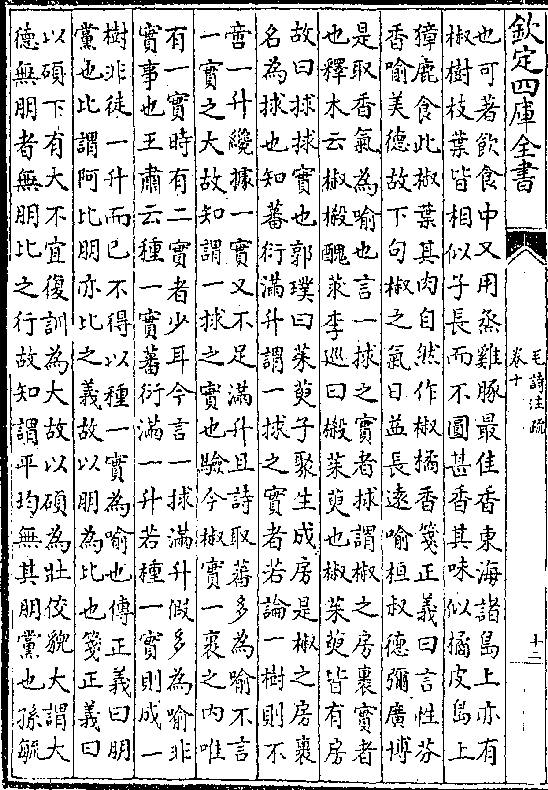 欽定四庫全書
毛詩注疏
卷十
十二
也可著飲食中又用烝雞豚最佳香東海諸島上亦有
椒樹枝葉皆相似子長而不圓甚香其味似橘皮島上
獐鹿食此椒葉其肉自然作椒橘香箋正義曰言性芬
香喻美德故下句椒之氣日益長遠喻桓叔德彌廣博
是取香氣為喻也言一捄之實者捄謂椒之房裹實者
也釋木云椒樧醜莍李巡曰樧茱萸也椒茱萸皆有房
故曰捄捄實也郭璞曰茱萸子聚生成房是椒之房裹
名為捄也知蕃衍滿升謂一捄之實者若論一樹則不
啻一升纔據一實又不足滿升且詩取蕃多為喻不言
一實之大故知謂一捄之實也驗今椒實一裹之內唯
有一實時有二實者少耳今言一捄滿升假多為喻非
實事也王肅云種一實蕃衍滿一升若種一實則成一
樹非徒一升而已不得以種一實為喻也傳正義曰朋
黨也比謂阿比朋亦比之義故以朋為比也箋正義曰
以碩下有大不宜復訓為大故以碩為壯佼貌大謂大
德無朋者無朋比之行故知謂平均無其朋黨也孫毓